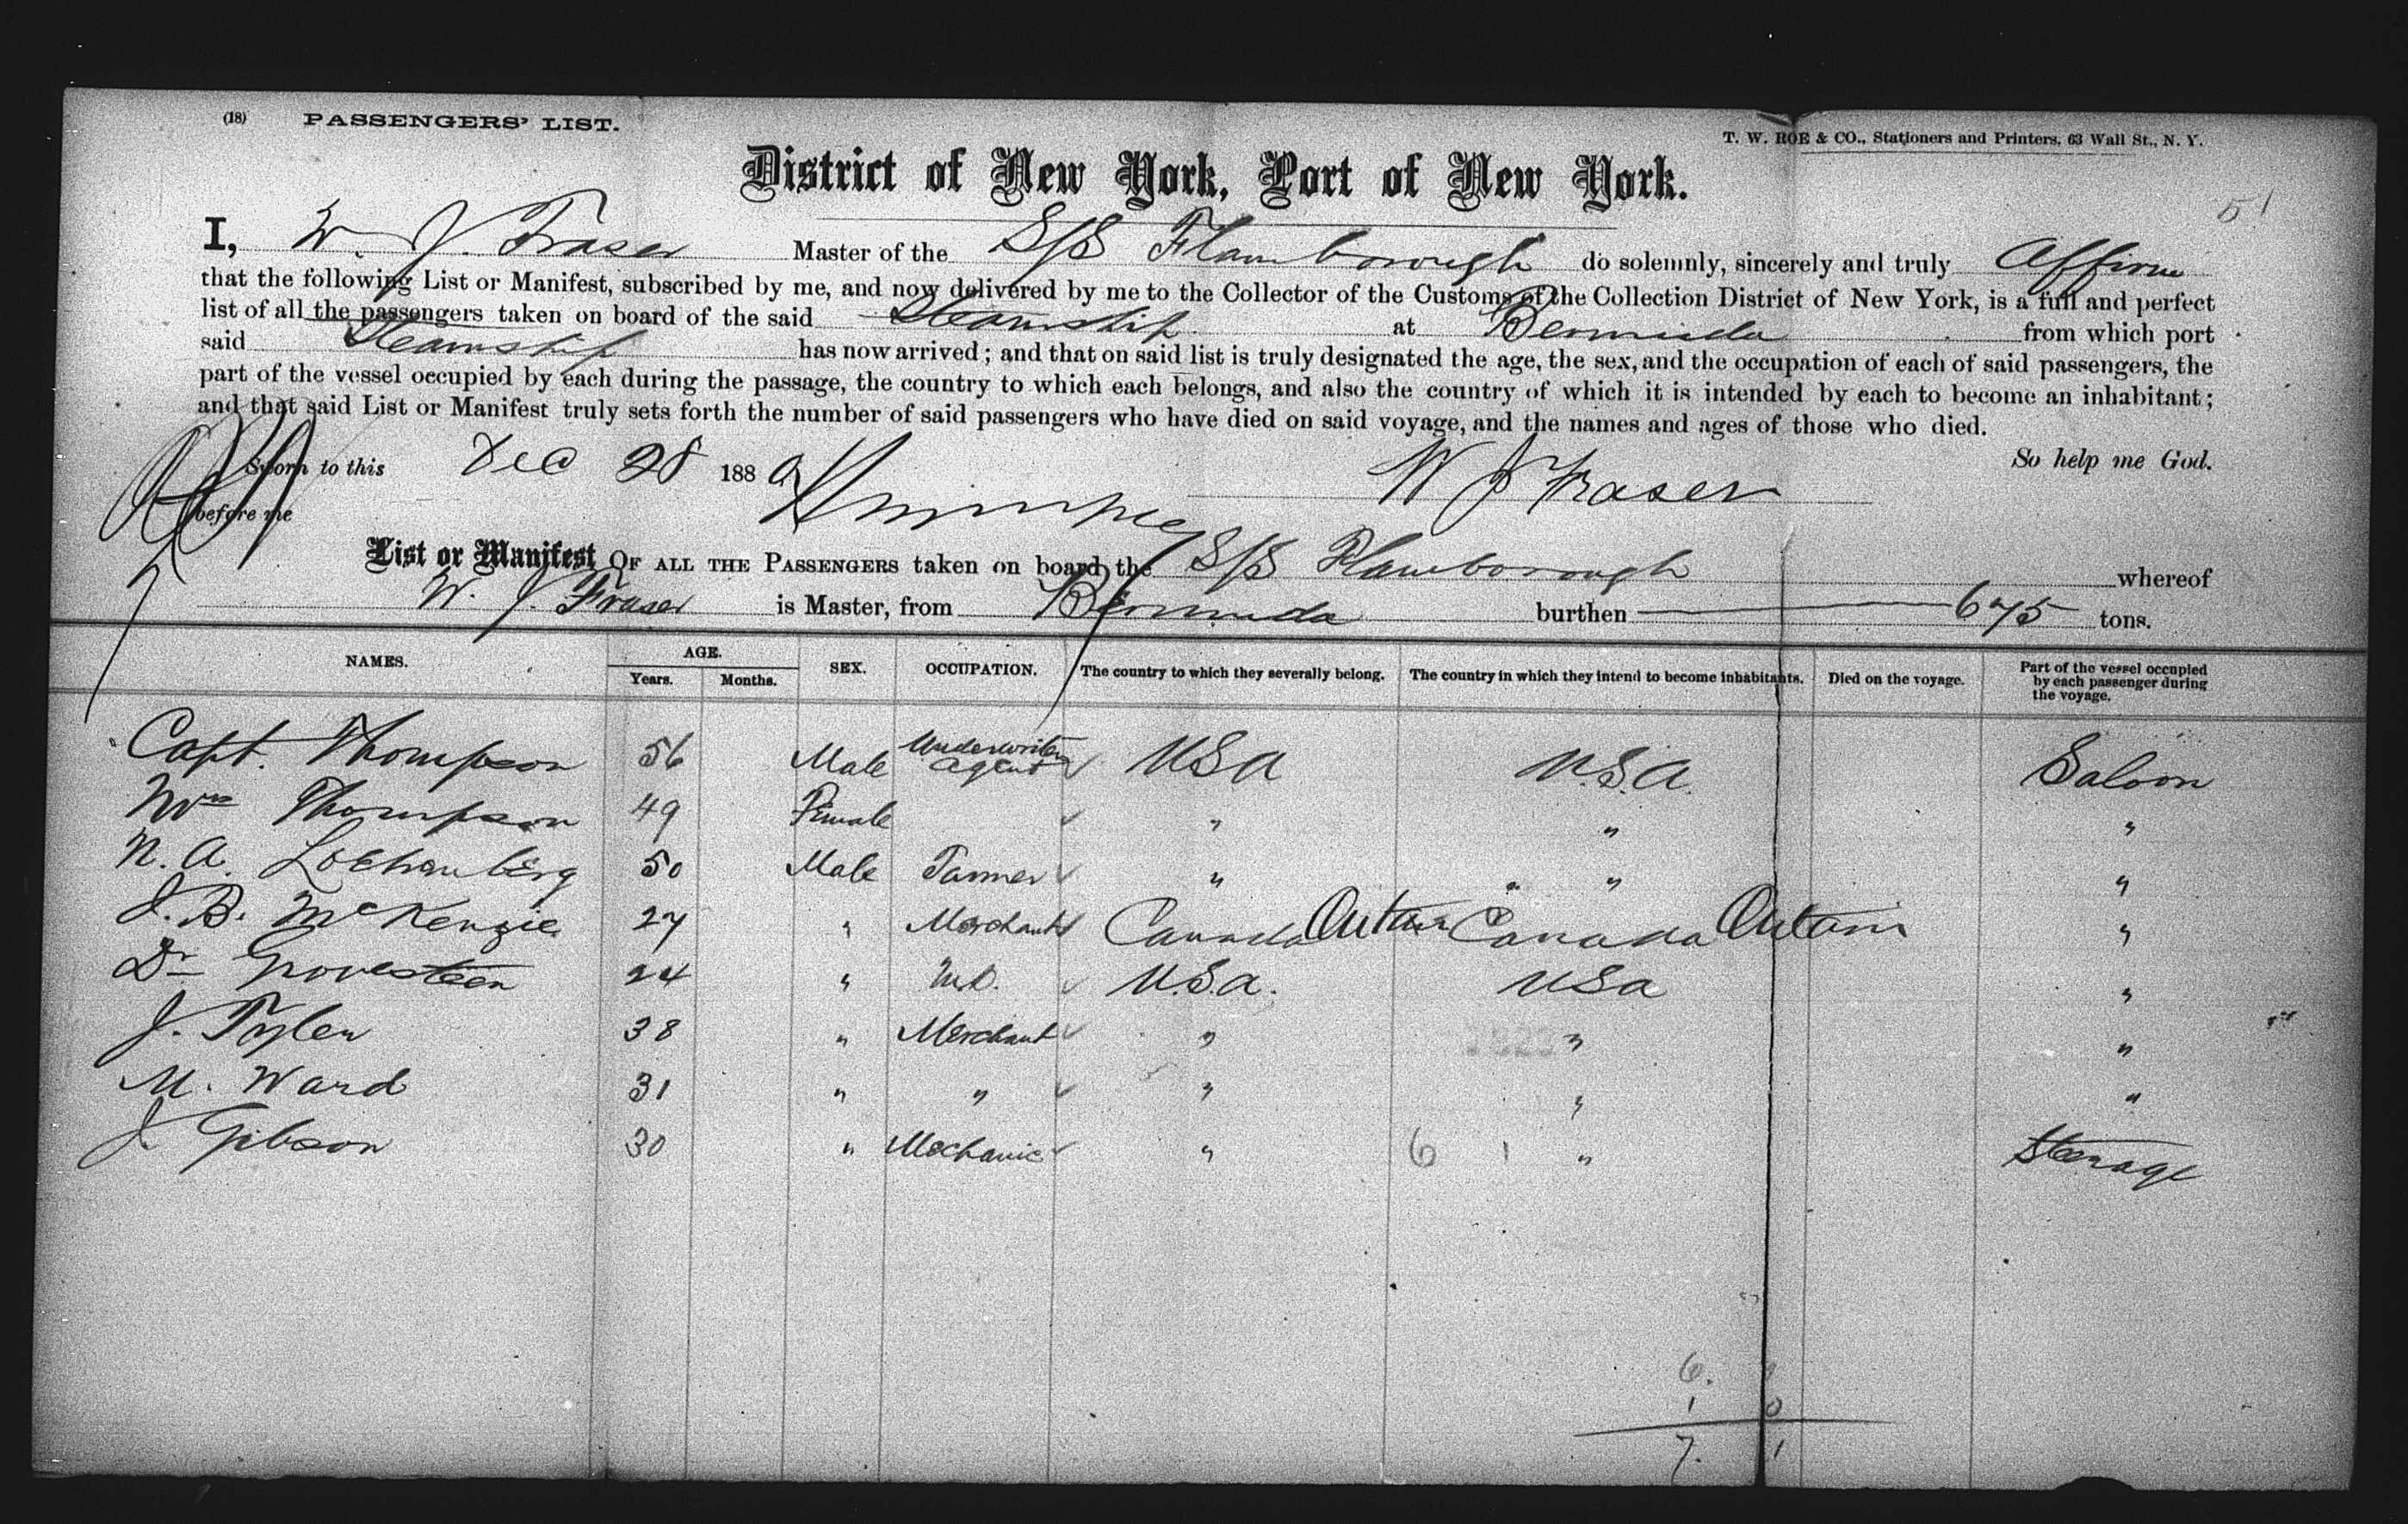 (18) PASSENGERS' LIST.
T. W. ROE & CO., Stationers and Printers, 63 Wall St., N. Y.
District of New York, Port of New York.
51
I, W. J. Fraser Master of the S/S Flamborough do solemnly, sincerely and truly Affirm
that the following List or Manifest, subscribed by me, and now delivered by me to the Collector of the Customs of the Collection District of New York, is a full and perfect
list of all the passengers taken on board of the said Steamship at Bermuda from which port
said Steamship has now arrived; and that on said list is truly designated the age, the sex, and the occupation of each of said passengers, the
part of the vessel occupied by each during the passage, the country to which each belongs, and also the country of which it is intended by each to become an inhabitant;
and that said List or Manifest truly sets forth the number of said passengers who have died on said voyage, and the names and ages of those who died.
Sworn to this Dec 28 1889 So help me God.
W J Fraser
before me
List or Manifest OF ALL THE PASSENGERS taken on board the S/S Flamborough whereof
W. J. Fraser is Master, from Bermuda burthen 675 tons.
NAMES. AGE. Years. Months. SEX. OCCUPATION. The country to which they severally belong. The country in which they intend to become inhabitants. Died on the voyage. Part of the vessel occupied by each passenger during the voyage.
Capt. Thompson 56 Male Underwriters agent USA U.S.A. Saloon
Mrs Thompson 49 Female " " "
N. A. 50 Male Tanner " " " "
J. B. McKenzie 27 " Merchant Canada Canada "
Dr Grovesteen 24 " M.D. U.S.A. USA "
J. Tyler 38 " Merchant " " "
M. Ward 31 " " " " "
J Gibson 30 " Mechanic " 6 1 " Steerage
6.
1 0
7. 1